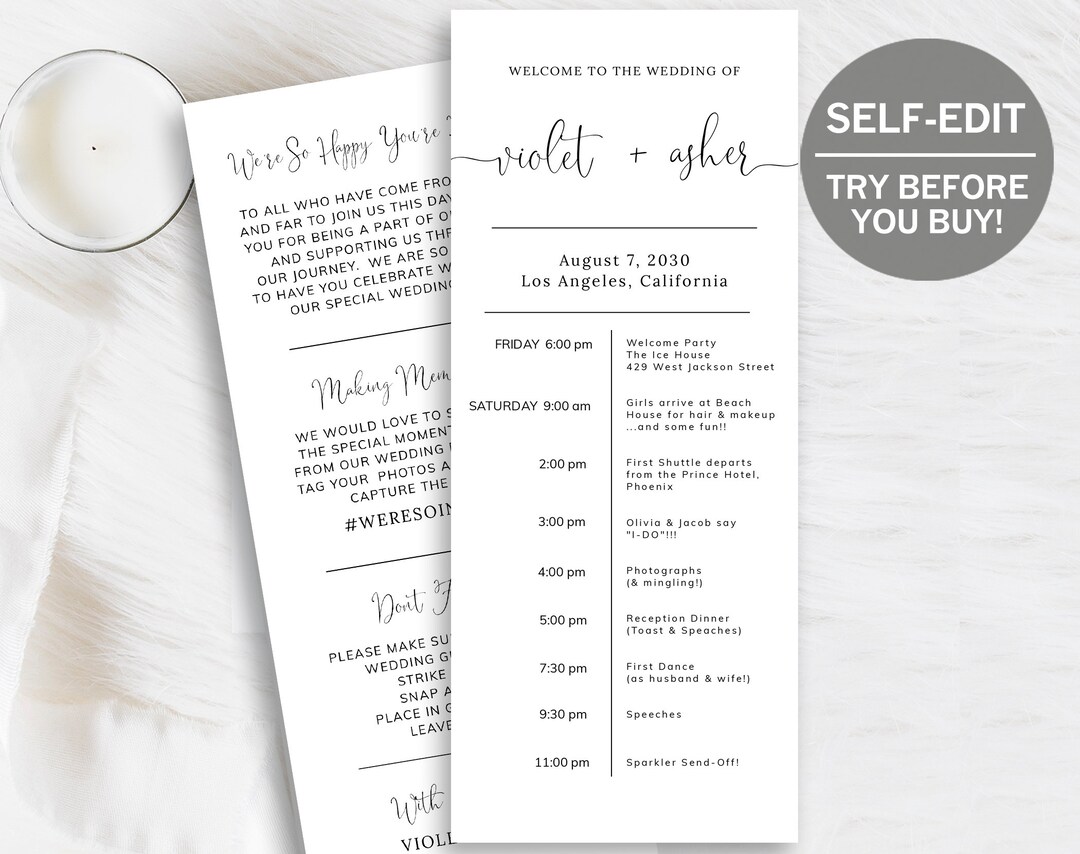 WELCOME TO THE WEDDING OF
violet + asher
August 7, 2030
Los Angeles, California
FRIDAY 6:00 pm
Welcome Party
The Ice House
429 West Jackson Street
SATURDAY 9:00 am
Girls arrive at Beach
House for hair & makeup
...and some fun!!
2:00 pm
First Shuttle departs
from the Prince Hotel,
Phoenix
3:00 pm
Olivia & Jacob say
"I-DO"!!!
4:00 pm
Photographs
(& mingling!)
5:00 pm
Reception Dinner
(Toast & Speaches)
7:30 pm
First Dance
(as husband & wife!)
9:30 pm
Speeches
11:00 pm
Sparkler Send-Off!
We're So Happy You're
TO ALL WHO HAVE COME
AND FAR TO JOIN US THIS DAY
YOU FOR BEING A PART OF
AND SUPPORTING US
OUR JOURNEY. WE ARE SO
TO HAVE YOU CELEBRATE
OUR SPECIAL WEDDING
Making
WE WOULD LOVE TO
THE SPECIAL
FROM OUR WEDDING
TAG YOUR PHOTOS
CAPTURE THE
Don't
PLEASE MAKE
WEDDING
STRIKE
SNAP
PLACE IN
With
SELF-EDIT
TRY BEFORE
YOU BUY!